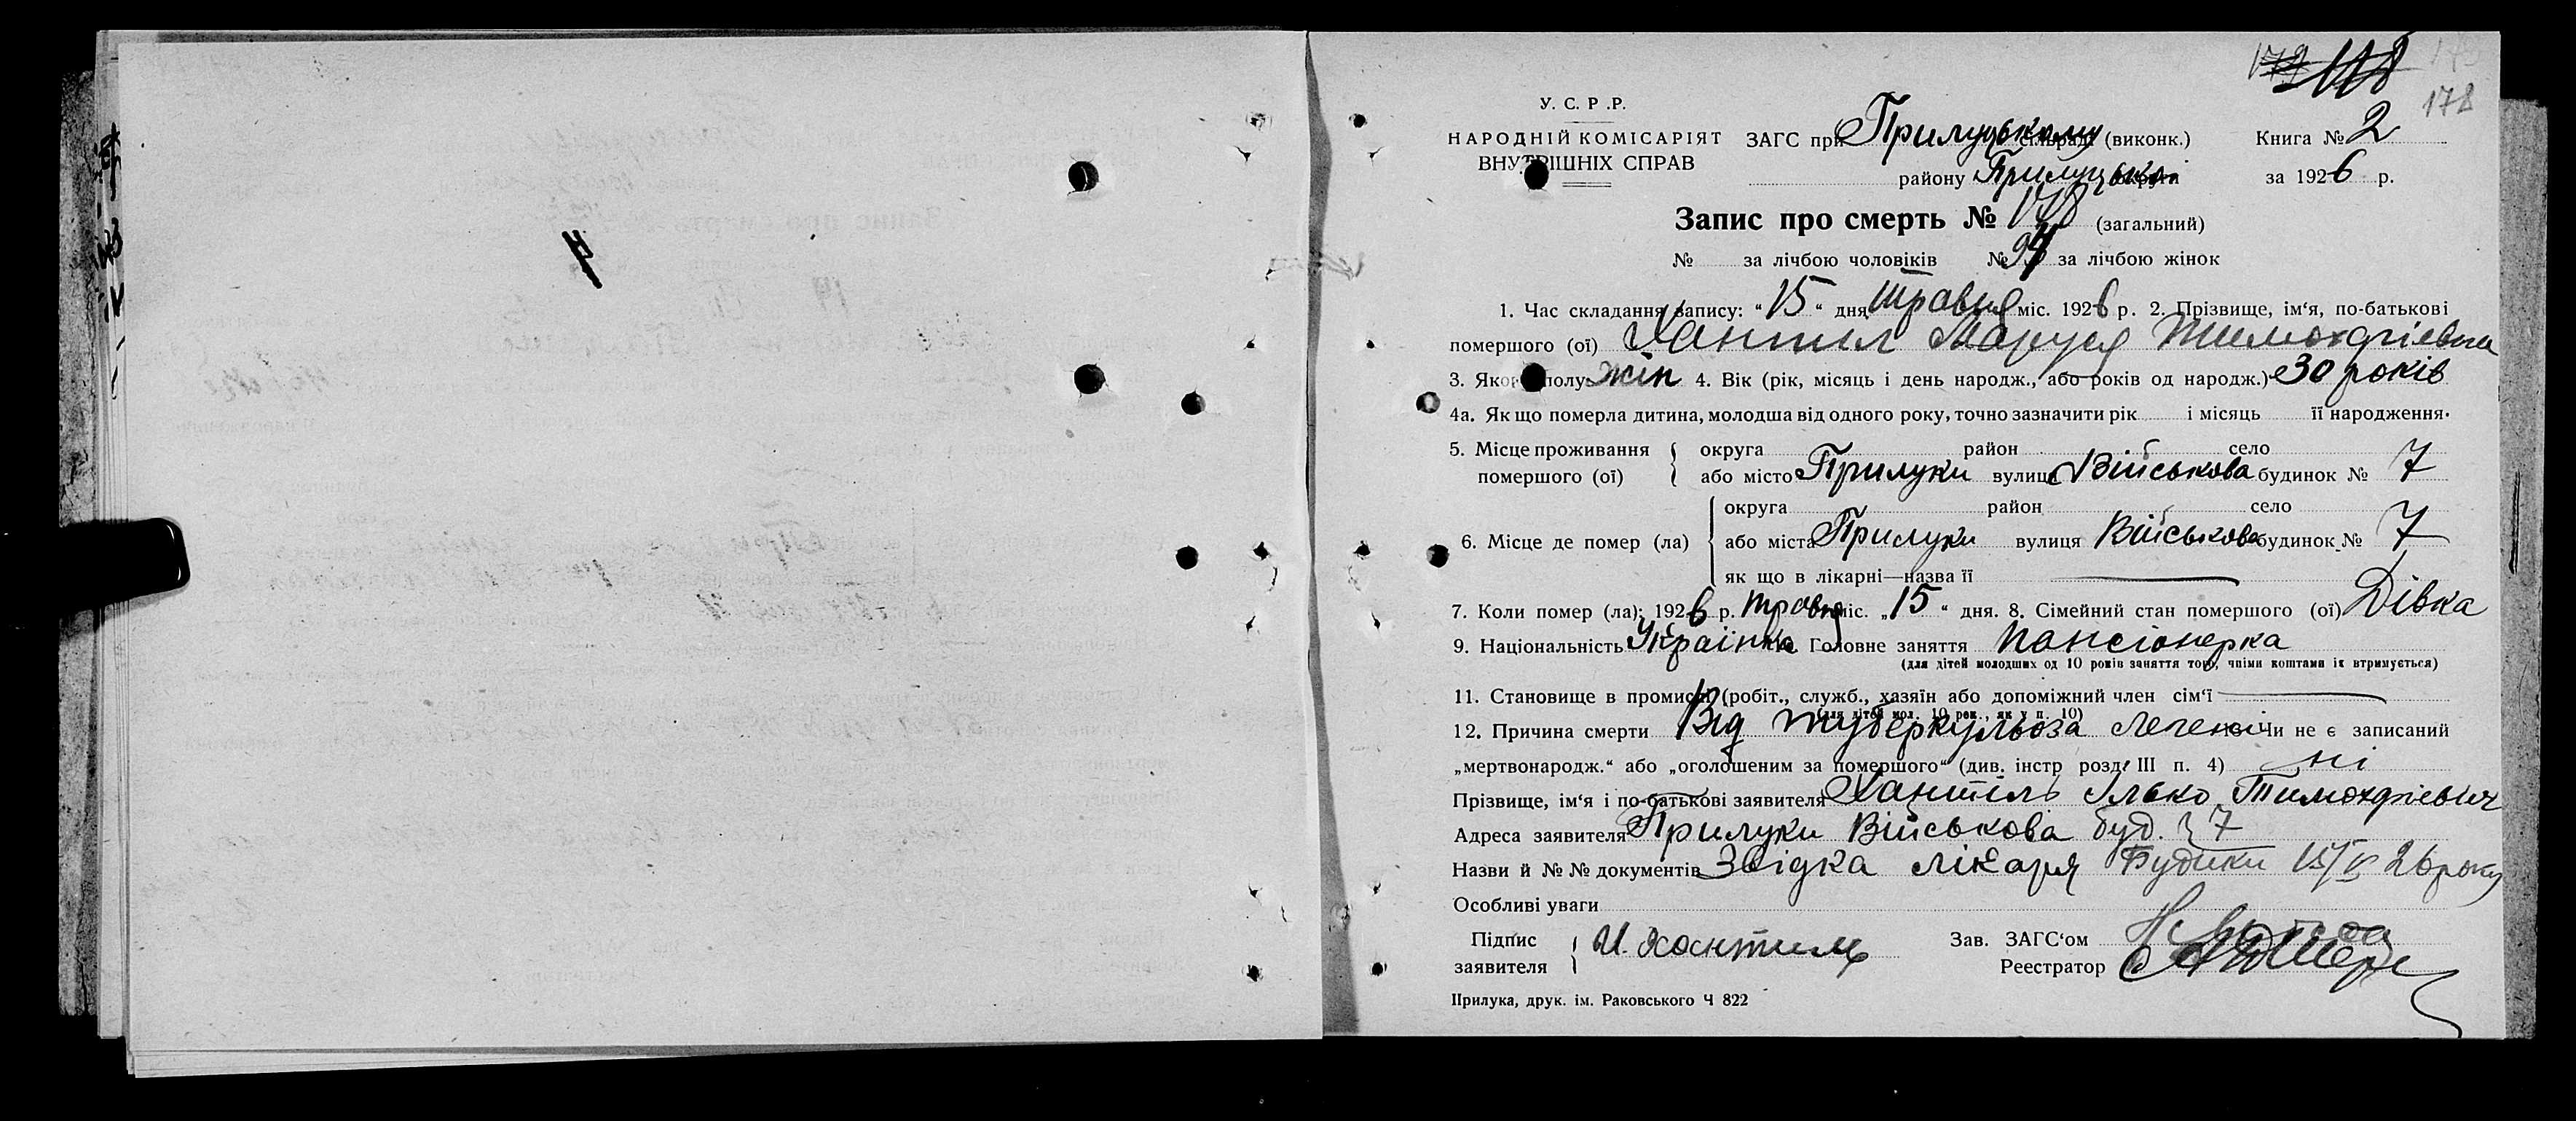 178
У. С. Р .Р.
НАРОДНІЙ КОМІСАРІЯТ
ВНУТРІШНІХ СПРАВ
ЗАГС при Прилуцькому сільраді (виконк.)
району Прилуцька округи
Книга № 2
за 1926 р.
Запис про смерть № 178 (загальний)
№ за лічбою чоловіків № 94 за лічбою жінок
1. Час складання запису: “ 15 “ дня травня міс. 1926 р. 2. Прізвище, ім‘я, по-батькові
помершого (ої) Хантил Маруся Тимохфієвна
3. Якої полу жін 4. Вік (рік, місяць і день народж., або років од народж.) 30 років
4а. Як що померла дитина, молодша від одного року, точно зазначити рік і місяць її народження.
5. Місце проживання помершого (ої) { округа район село
або місто Прилуки вулиця Військова будинок № 7
6. Місце де помер (ла) { округа район село
або міста Прилуки вулиця Військова будинок № 7
як що в лікарні—назва її
7. Коли помер (ла): 1926 р. травня міс. „ 15 “ дня. 8. Сімейний стан помершого (ої) Дівка
9. Національність Українка Головне заняття пансіонерка
(для дітей молодших од 10 років заняття того, чиїми коштами їх втримується)
11. Становище в промислі (робіт., служб., хазяїн або допоміжний член сім‘ї
(для дітей мол. 10 рок., як у п. 10)
12. Причина смерти Від туберкульоза легенів Чи не є записаний
„мертвонародж.“ або „оголошеним за помершого“ (див. інстр розд III п. 4) ні
Прізвище, ім‘я і по-батькові заявителя Хантіль Ілько Тимохфієвич
Адреса заявителя Прилуки Військова буд. 7
Назви й № № документів Звідка лікаря Будики 15/V 26 року
Особливі уваги
Підпис заявителя { И. Хантиль
Зав. ЗАГС‘ом
Реестратор
Прилука, друк. ім. Раковського Ч 822